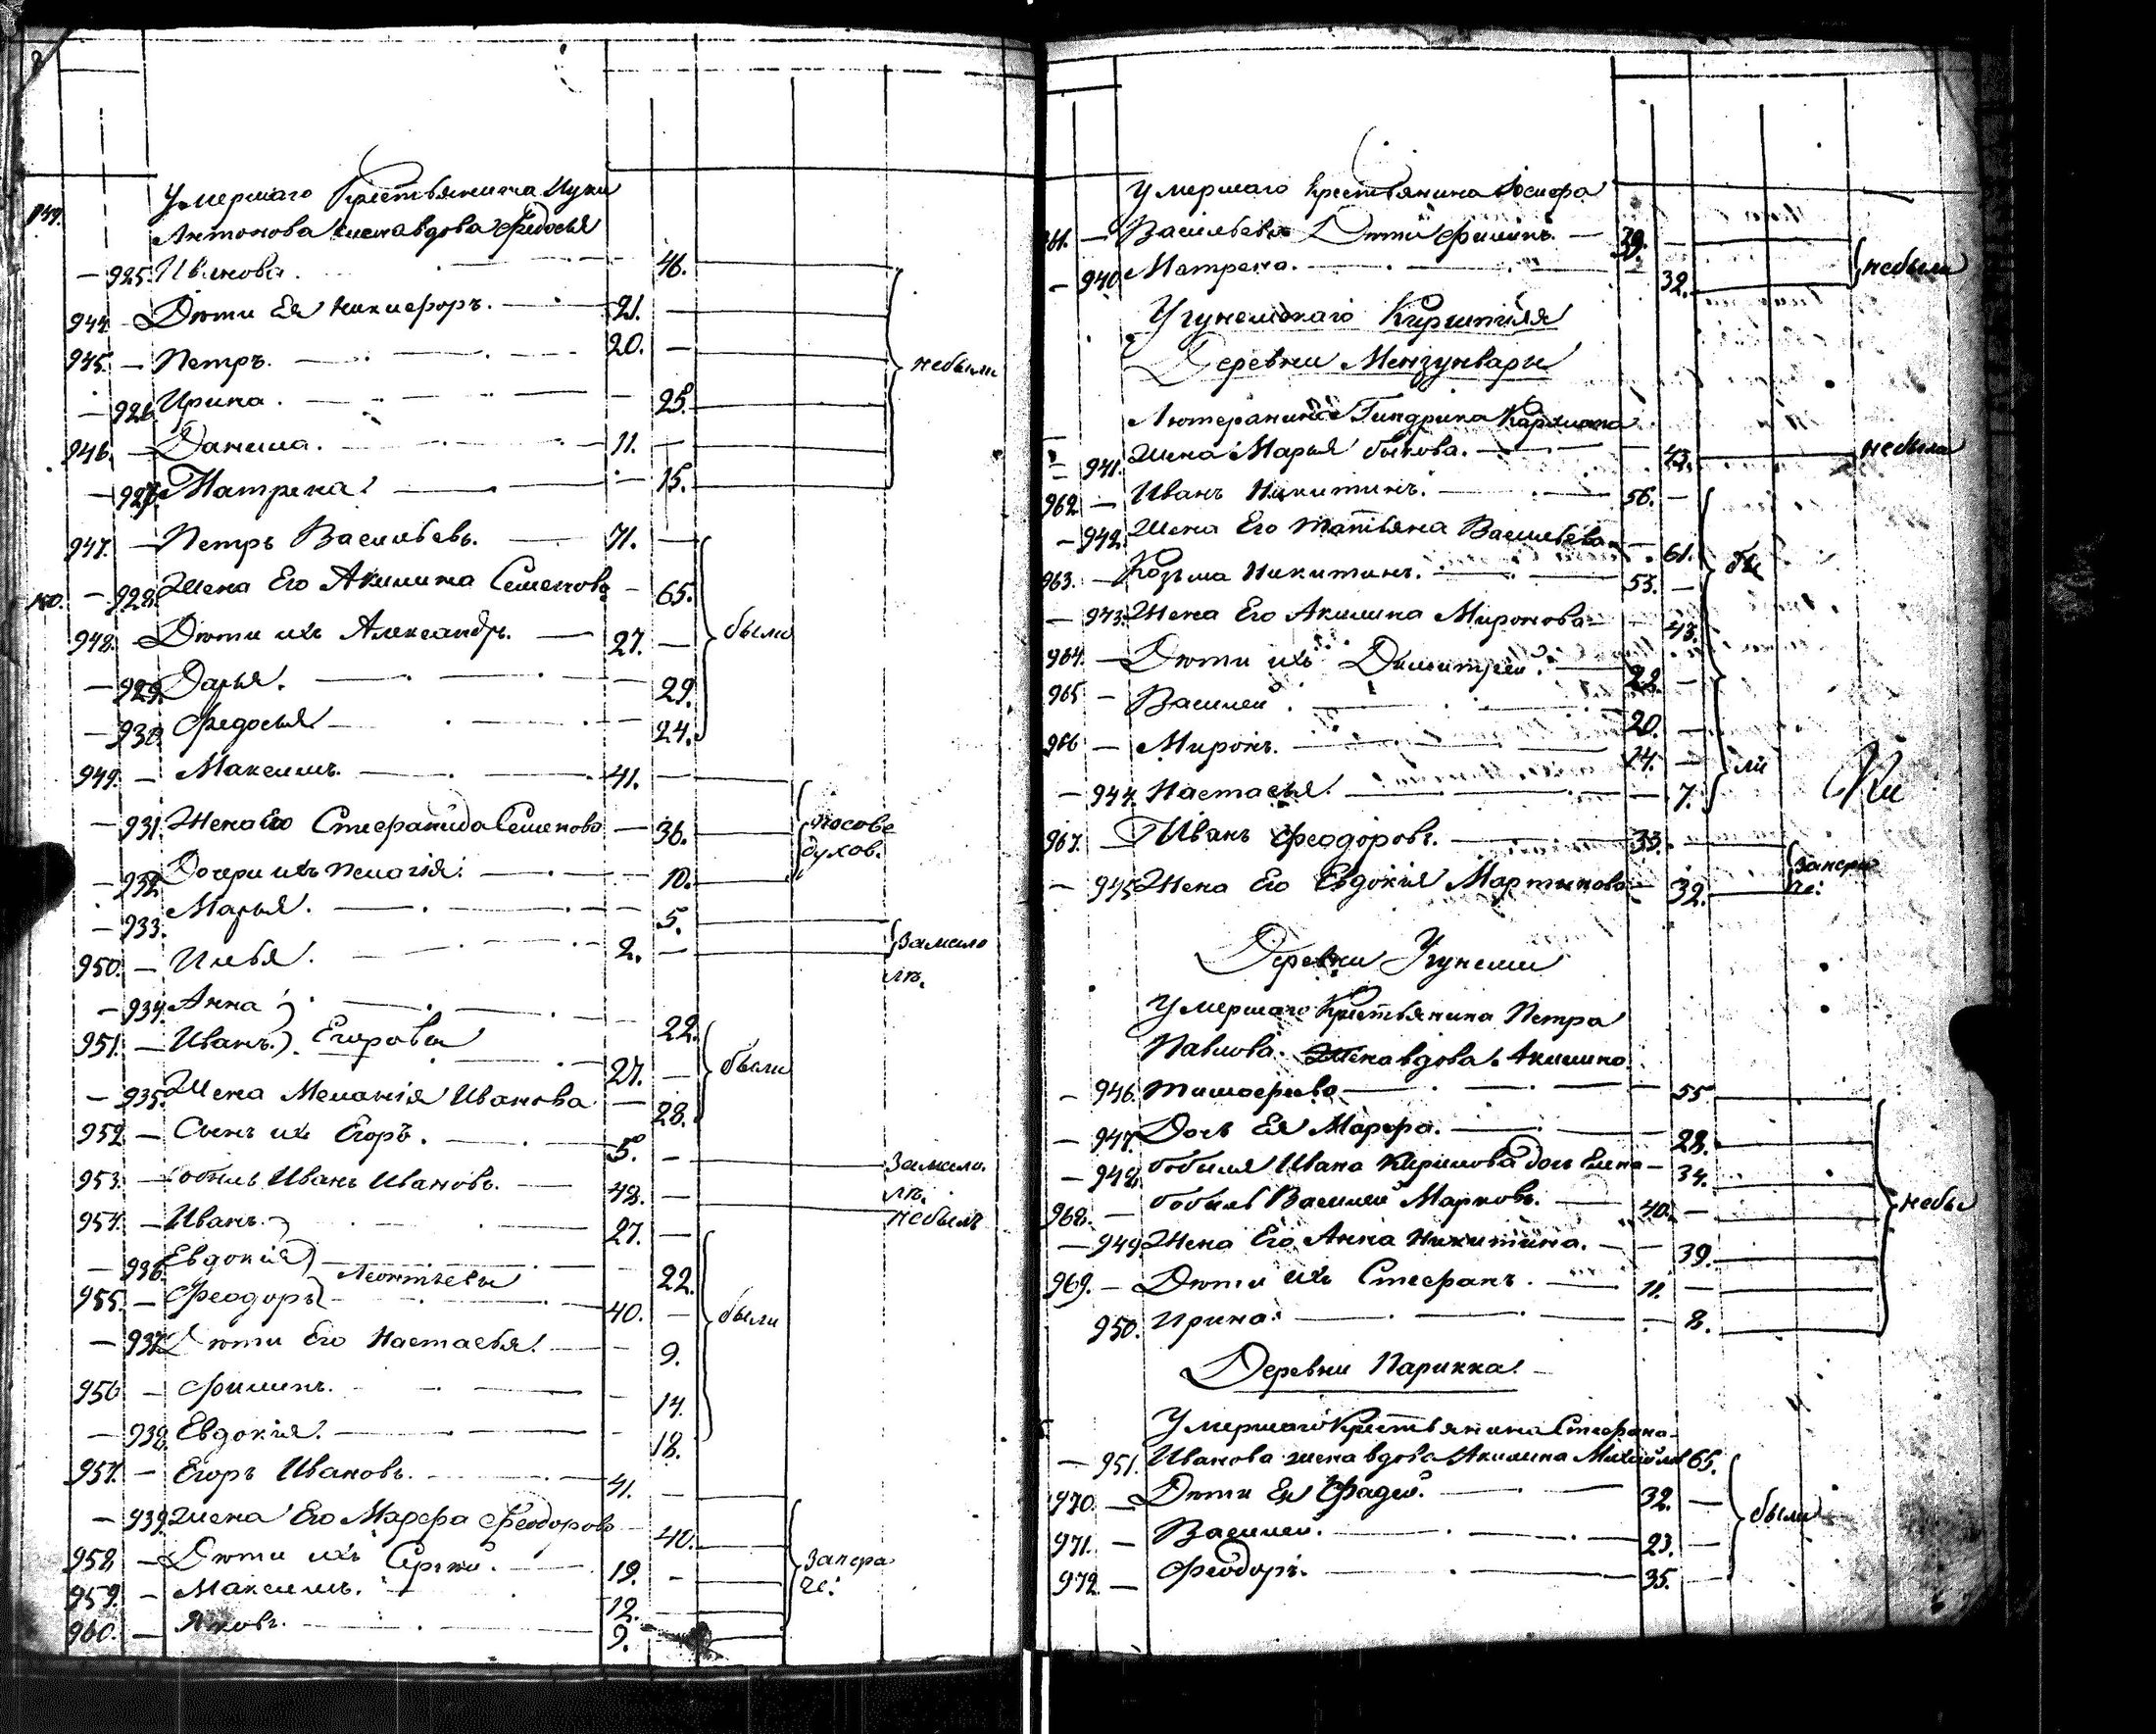 149.
Умершаго Крестьянина Луки
Антонова жена вдова Федосья
— 925. Иванова. — 46.
944. — Дѣти Ея Никифоръ. — 21. —
945. — Петръ. — 20. —
— 926. Ирина. — 25.
946. — Данила. — 11. —
— 927. Матрена. — 15.
небыли
947. — Петръ Васильевъ. — 71. —
150. — 928. Жена Его Акилина Семенова — 65.
948. — Дѣти ихъ Александръ. — 27. —
— 929. Дарья. — 29.
— 930. Федосья — 24.
были
949. — Максимъ. — 41. —
— 931. Жена Его Стефанида Семенова — 36.
— 932. Дочери ихъ Пелагія. — 10.
по сове
духов.
— 933. Марья. — 5.
950. — Илья. — 2. —
за мало
лѣ.
— 934. Анна — 22.
951. — Иванъ. Егоровы — 27. —
— 935. Жена Меланія Иванова — 28.
были
952. — Сынъ ихъ Егоръ. — 5. — за мало.
лѣ.
953. — бобыль Иванъ Ивановъ. — 48. — небылъ
954. — Иванъ. — 27. —
— 936. Евдокія Леонтьевы — 22.
955. — Феодоръ — 40. —
— 937. Дѣти Его Настасья. — 9.
956 — Филипъ. — 14.
— 938. Евдокія. — 18.
были
957. — Егоръ Ивановъ. — 41. —
— 939. Жена Его Марфа Феодорова — 40.
958. — Дѣти ихъ Сергей. — 19. —
959. — Максимъ. — 12. —
960. — Яковъ. — 9.
за нера
че:
Умершаго Крестьянина Іосифа
961. — Васильева Дѣти Филипъ. — 39. —
— 940. Матрена. — 32.
небыли
Угунемскаго Кирштиля
Деревни Мензунвари
Лютеранина Гиндрика
— 941. Жена Марья Быкова. — 43. небыла
962. — Иванъ Никитинъ. — 56. —
— 942. Жена Его Татьяна Васильева — 61.
963. — Козьма Никитинъ. — 53. —
— 943. Жена Его Акилина Миронова — 43.
964. — Дѣти ихъ Димитрей. — 22. —
965 — Василей. — 20. —
966 — Миронъ. — 14. —
— 944. Настасья. — 7.
бы
ли
967. — Иванъ Феодоровъ. — 33. —
— 945. Жена Его Евдокія Мартинова — 32.
за нера
че:
Деревни Угунеми
Умершаго Крестьянина Петра
Павлова. Жена вдова Акилина
— 946. Тимофеева — 55
— 947. Дочь Ея Марфа. — 28.
— 948. бобыля Ивана Кирилова дочь Елена — 34.
968. — бобыль Василей Марковъ. — 40. —
— 949. Жена Его Анна Никитина. — 39.
969. — Дѣти ихъ Стефанъ. — 11. —
950. Ирина. — 8.
небы
Деревни Парикка. —
Умершаго Крестьянина Стефана
— 951. Иванова жена вдова Акилина 65.
970. — Дѣти Ея Фадей. — 32. —
971. — Василей. — 23. —
972. — Феодоръ. — 35. —
были